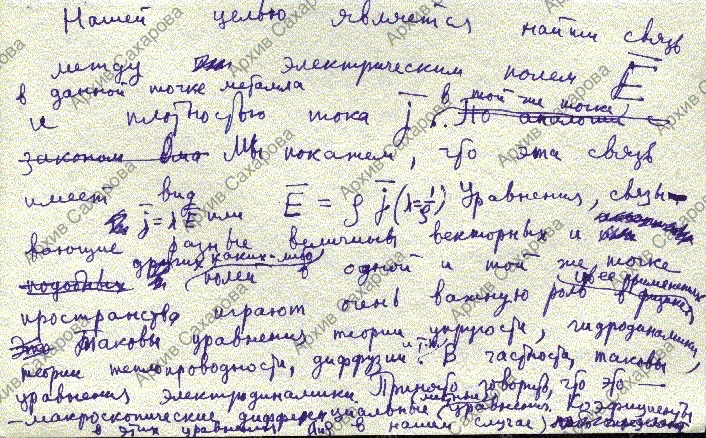 Нашей целью является найти связь
между электрическим полем E
в данной точке металла
и плотностью тока j в той же точке. По аналогии с
законом Ома Мы покажем, что эта связь
имеет вид
j = λE или E = ρ j (λ=1/ρ) Уравнения, связы-
вающие разные величины векторных и
подобных других каких-либо полей в одной и той же точке
пространства играют очень важную роль в физике
Это Таковы уравнения теории упругости, гидродинамики,
теории теплопроводности, диффузии и т.п. В частности, таковы
уравнения электродинамики. Принято говорить, что это —
– макроскопические дифференциальные уравнения. Коэффициенты
в этих уравнениях в нашем случае
Архив Сахарова